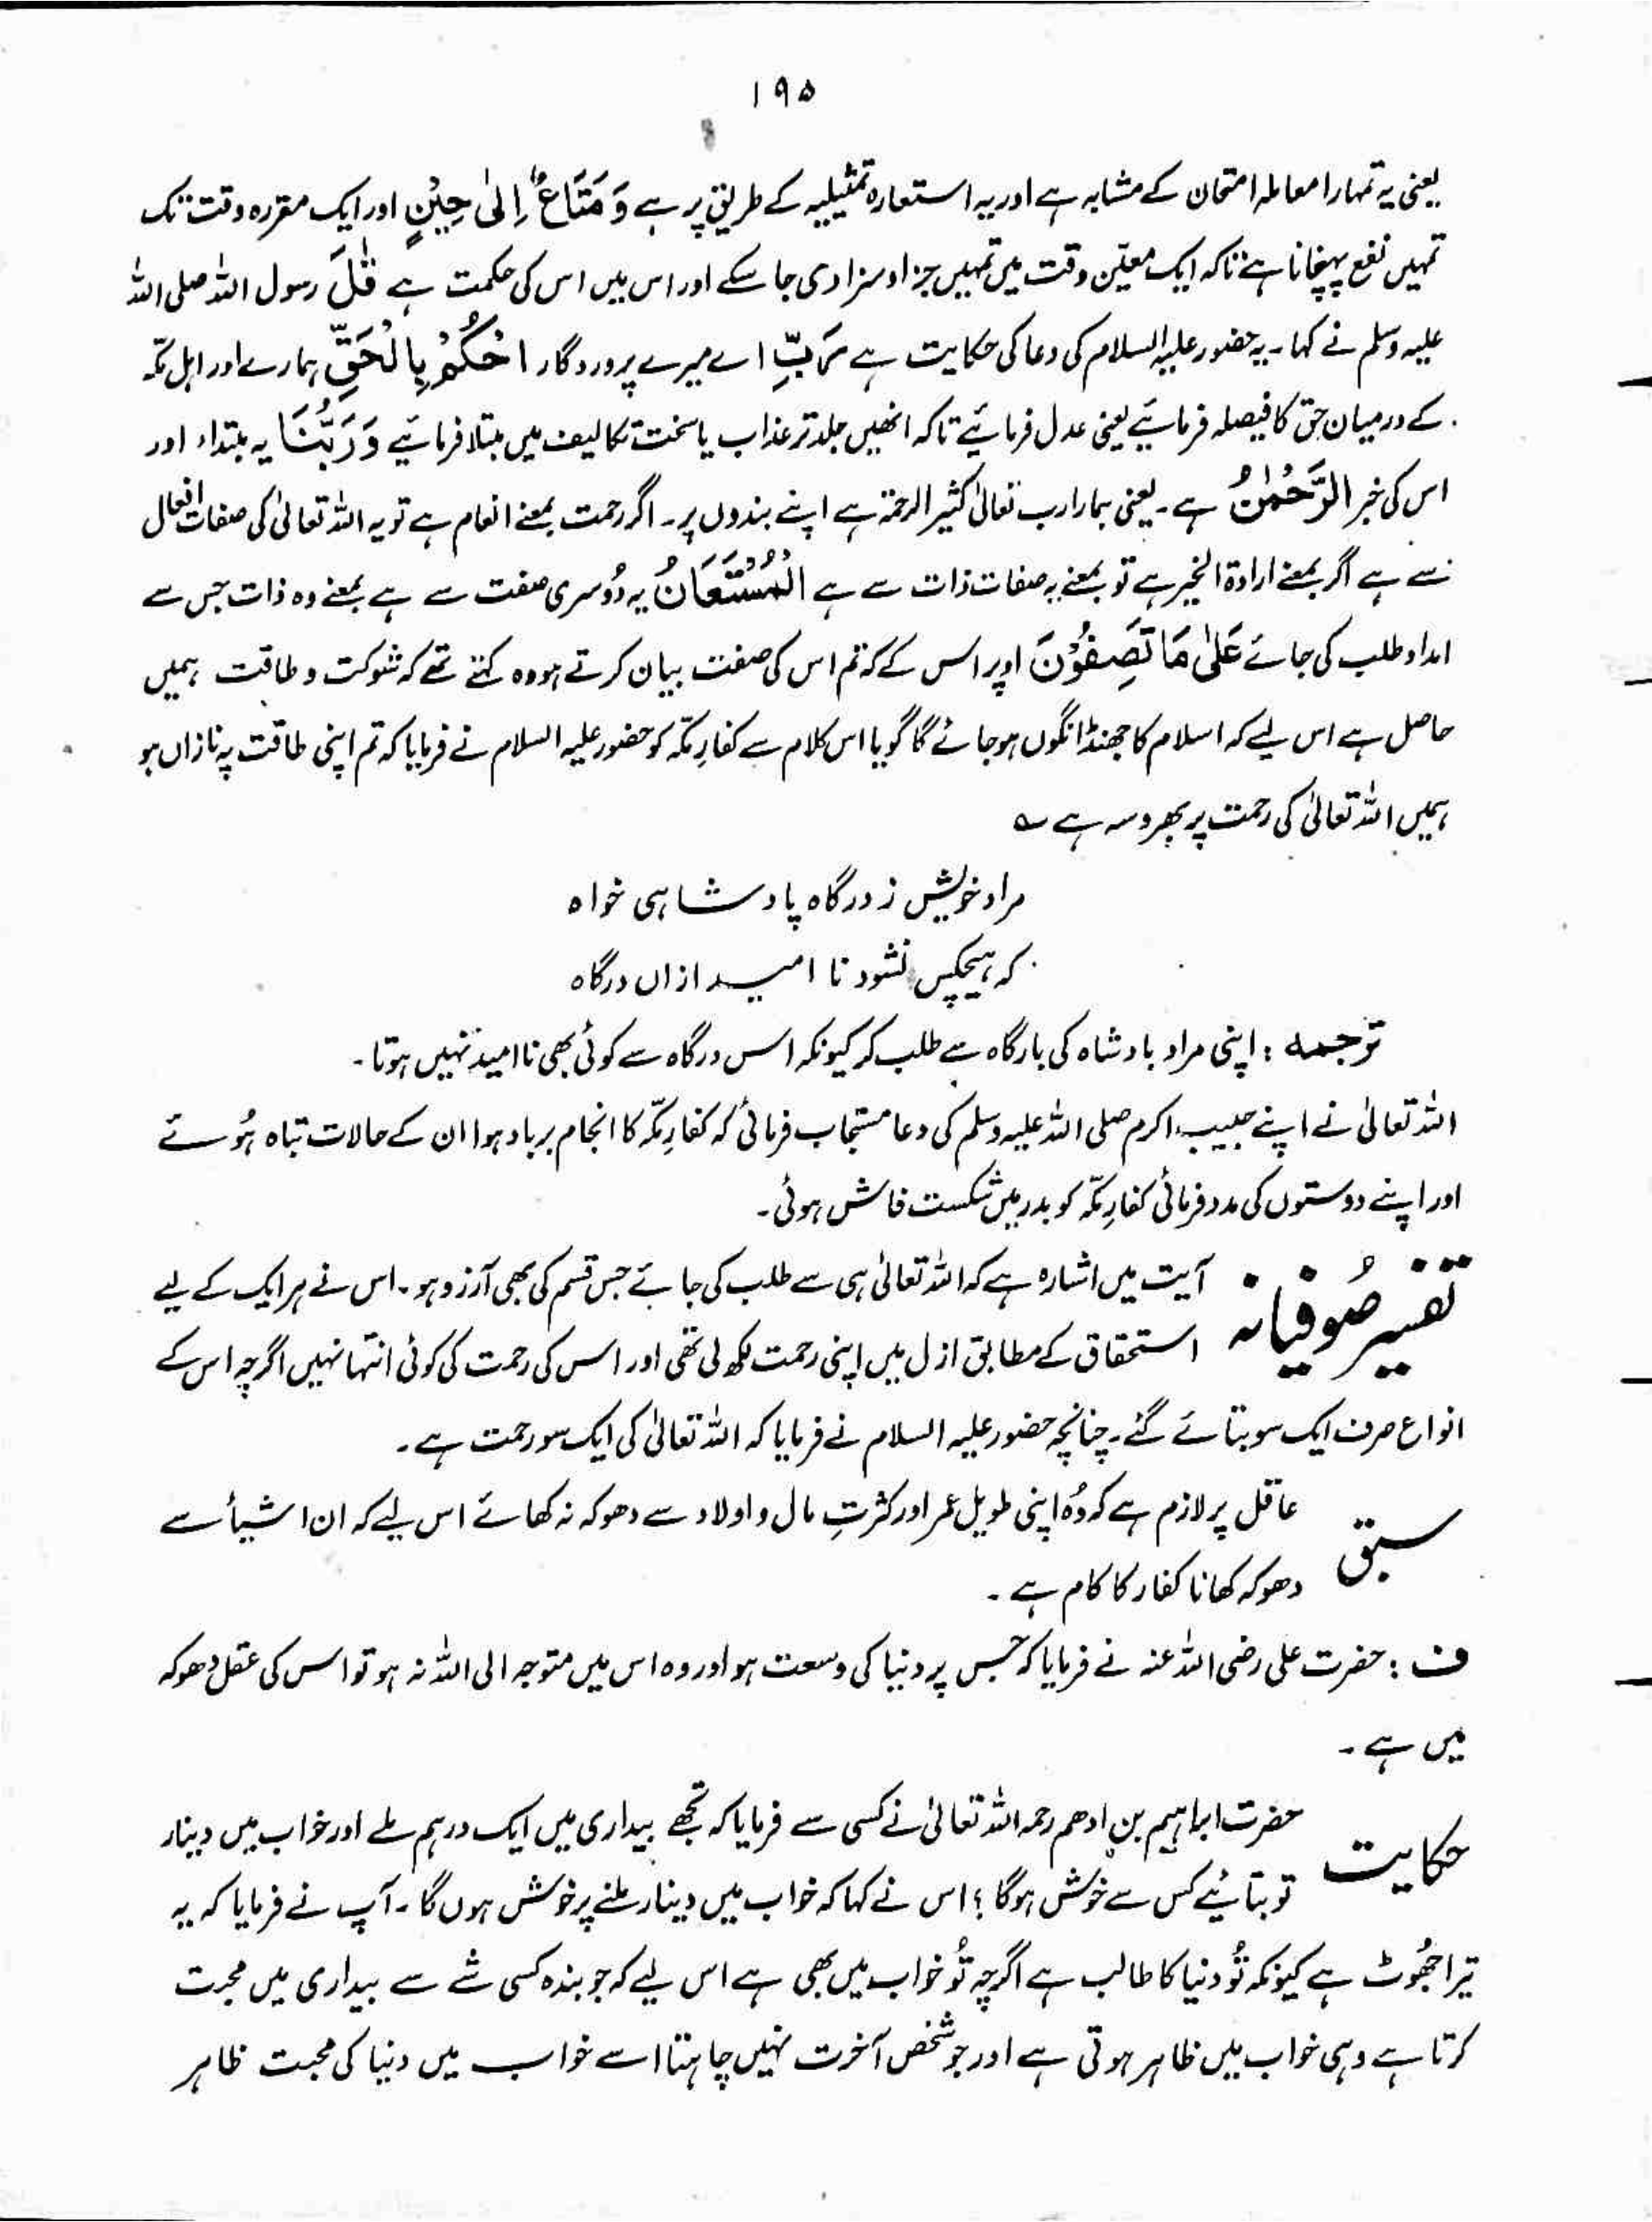 ۱۹۵
یعنی یہ تمہارا معاملہ امتحان کے مشابہ ہے اور یہ استعارہ تمثیلیہ کے طریق پر ہے وَمَتَاعٌ اِلٰی حِیْنٍ اور ایک مقررہ وقت تک
تمہیں نفع پہنچانا ہے تاکہ ایک معیّن وقت میں تمہیں جزا و سزا دی جا سکے اور اس میں اس کی حکمت ہے قٰلَ رسول اللہ صلی اللہ
علیہ وسلم نے کہا۔ یہ حضور علیہ السلام کی دعا کی حکایت ہے رَبِّ اے میرے پروردگار احْكُمْ بِالْحَقِّ ہمارے اور اہل مکّہ
کے درمیان حق کا فیصلہ فرمائیے یعنی عدل فرمائیے تاکہ انھیں جلد تر عذاب یا سخت تکالیف میں مبتلا فرمائیے وَرَبُّنَا یہ مبتداء اور
اس کی خبر الرَّحْمٰنُ ہے۔ یعنی ہمارا رب تعالیٰ کثیر الرحمۃ ہے اپنے بندوں پر۔ اگر رحمت بمعنے انعام ہے تو یہ اللہ تعالیٰ کی صفات افعال
سے ہے اگر بمعنے ارادۃ الخیر ہے تو بمعنے بہ صفات ذات سے ہے الْمُسْتَعَانُ یہ دُوسری صفت سے ہے بمعنے وہ ذات جس سے
امداد طلب کی جائے عَلٰی مَا تَصِفُوْنَ اوپر اس کے کہ تم اس کی صفت بیان کرتے ہو وہ کہتے تھے کہ شوکت و طاقت ہمیں
حاصل ہے اس لیے کہ اسلام کا جھنڈا نگوں ہو جائے گا گویا اس کلام سے کفارِ مکّہ کو حضور علیہ السلام نے فرمایا کہ تم اپنی طاقت پہ نازاں ہو
ہمیں اللہ تعالیٰ کی رحمت پر بھروسہ ہے ؎
مراد خویش ز درگاہ پادشاہی خواہ
کہ ہیچکس نشود نا امید ازاں درگاہ
ترجمہ : اپنی مراد بادشاہ کی بارگاہ سے طلب کر کیونکہ اس درگاہ سے کوئی بھی ناامید نہیں ہوتا۔
اللہ تعالیٰ نے اپنے حبیب اکرم صلی اللہ علیہ وسلم کی دعا مستجاب فرمائی کہ کفارِ مکّہ کا انجام برباد ہوا ان کے حالات تباہ ہُوئے
اور اپنے دوستوں کی مدد فرمائی کفارِ مکّہ کو بدر میں شکست فاش ہوئی۔
تفسیر صُوفیانہ آیت میں اشارہ ہے کہ اللہ تعالیٰ ہی سے طلب کی جائے جس قسم کی بھی آرزو ہو۔ اس نے ہر ایک کے لیے
استحقاق کے مطابق ازل میں اپنی رحمت لکھ لی تھی اور اس کی رحمت کی کوئی انتہا نہیں اگرچہ اس کے
انواع صرف ایک سو بتائے گئے۔ چنانچہ حضور علیہ السلام نے فرمایا کہ اللہ تعالیٰ کی ایک سو رحمت ہے۔
سبق عاقل پر لازم ہے کہ وُہ اپنی طویل عمر اور کثرتِ مال و اولاد سے دھوکہ نہ کھائے اس لیے کہ ان اشیأ سے
دھوکہ کھانا کفار کا کام ہے۔
ف : حضرت علی رضی اللہ عنہ نے فرمایا کہ جس پر دنیا کی وسعت ہو اور وہ اس میں متوجہ الی اللہ نہ ہو تو اس کی عقل دھوکہ
میں ہے۔
حکایت حضرت ابراہیم بن ادھم رحمہ اللہ تعالیٰ نے کسی سے فرمایا کہ تجھے بیداری میں ایک درہم ملے اور خواب میں دینار
تو بتائیے کس سے خوش ہوگا ؟ اس نے کہا کہ خواب میں دینار ملنے پر خوش ہوں گا۔ آپ نے فرمایا کہ یہ
تیرا جھُوٹ ہے کیونکہ تُو دنیا کا طالب ہے اگرچہ تُو خواب میں بھی ہے اس لیے کہ جو بندہ کسی شے سے بیداری میں محبت
کرتا ہے وہی خواب میں ظاہر ہوتی ہے اور جو شخص آخرت نہیں چاہتا اسے خواب میں دنیا کی محبت ظاہر